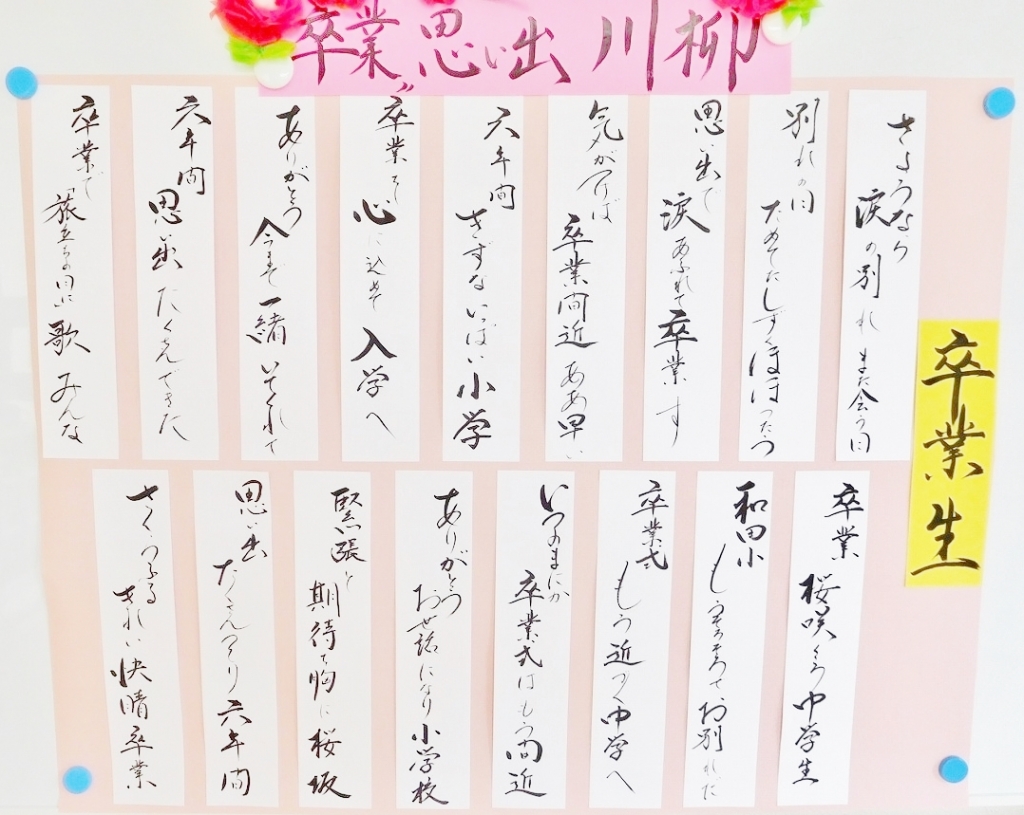 卒業思い出川柳
卒業生
さようなら 涙の別れ また会う日
別れの日 ためてたしずく ほほつたう
思い出で 涙あふれて 卒業す
気がつけば 卒業間近 ああ早い
六年間 きずないっぱい 小学
卒業を 心に込めて 入学へ
ありがとう 今まで一緒 いてくれて
六年間 思い出たくさん できた
卒業で 旅立ちの日に 歌 みんな
卒業 桜咲くころ 中学生
和田小 もうそろそろで お別れだ
卒業式 もう近づく 中学へ
いつのまにか 卒業式は もう間近
ありがとう お世話になり 小学校
緊張と 期待で胸に 桜坂
思い出 たくさんつくり 六年間
さくらふる きれい快晴 卒業